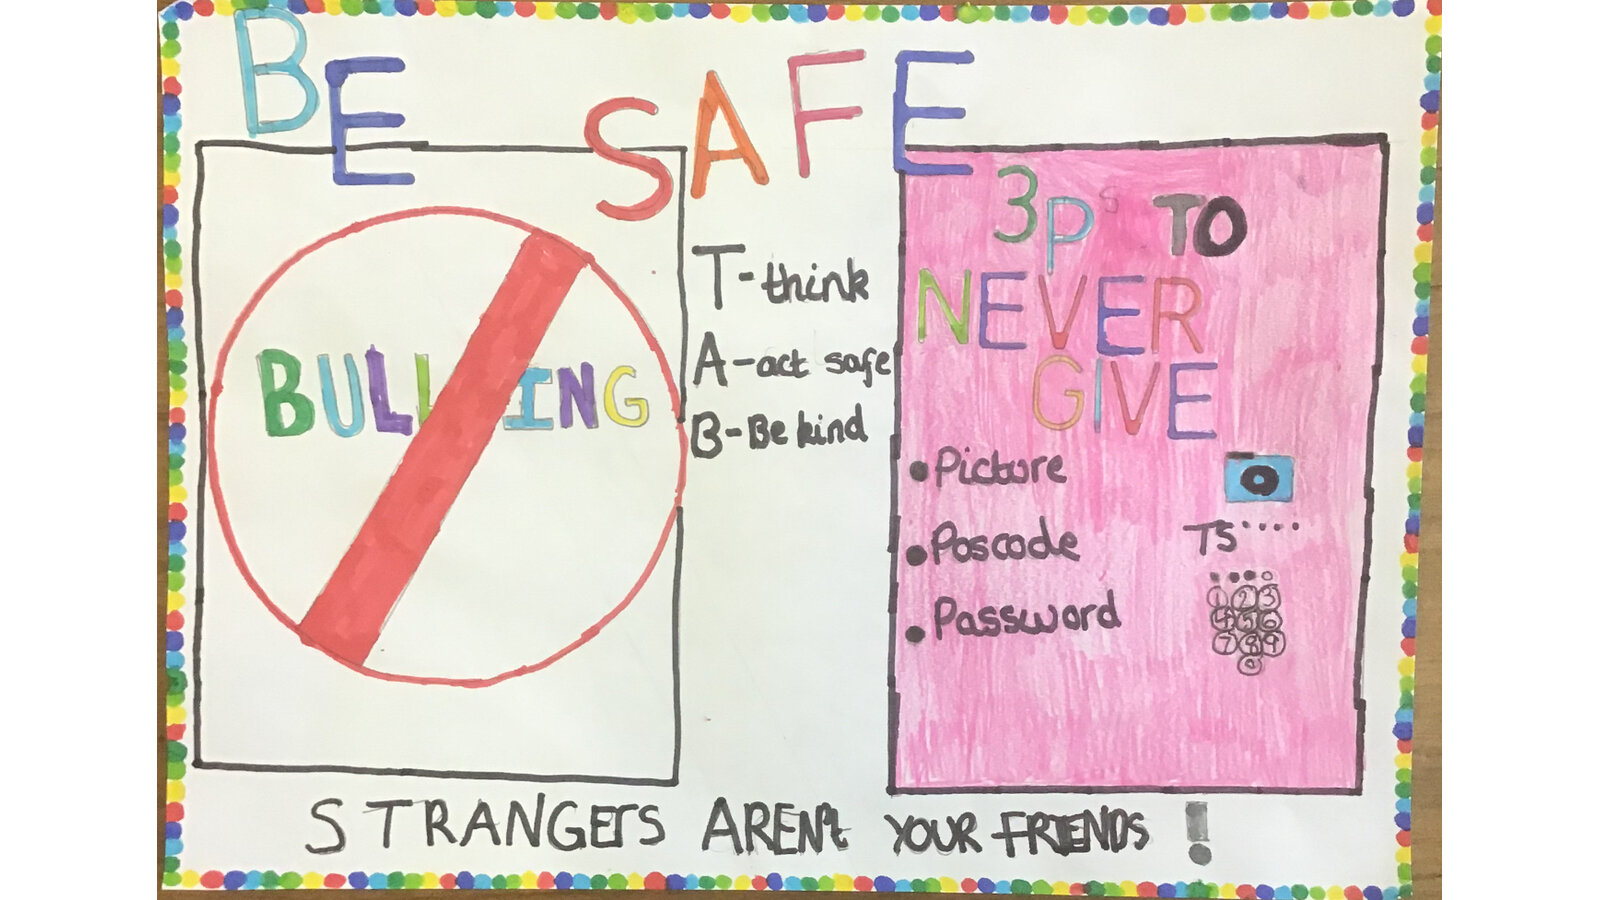 BE SAFE
BULLING
T-think
A-act safe
B-Be kind
3Ps TO
NEVER
GIVE
• Picture
• Poscode
TS.....
• Password
1 2 3
4 5 6
7 8 9
0
STRANGERS AREN't YOUR FRIENDS!